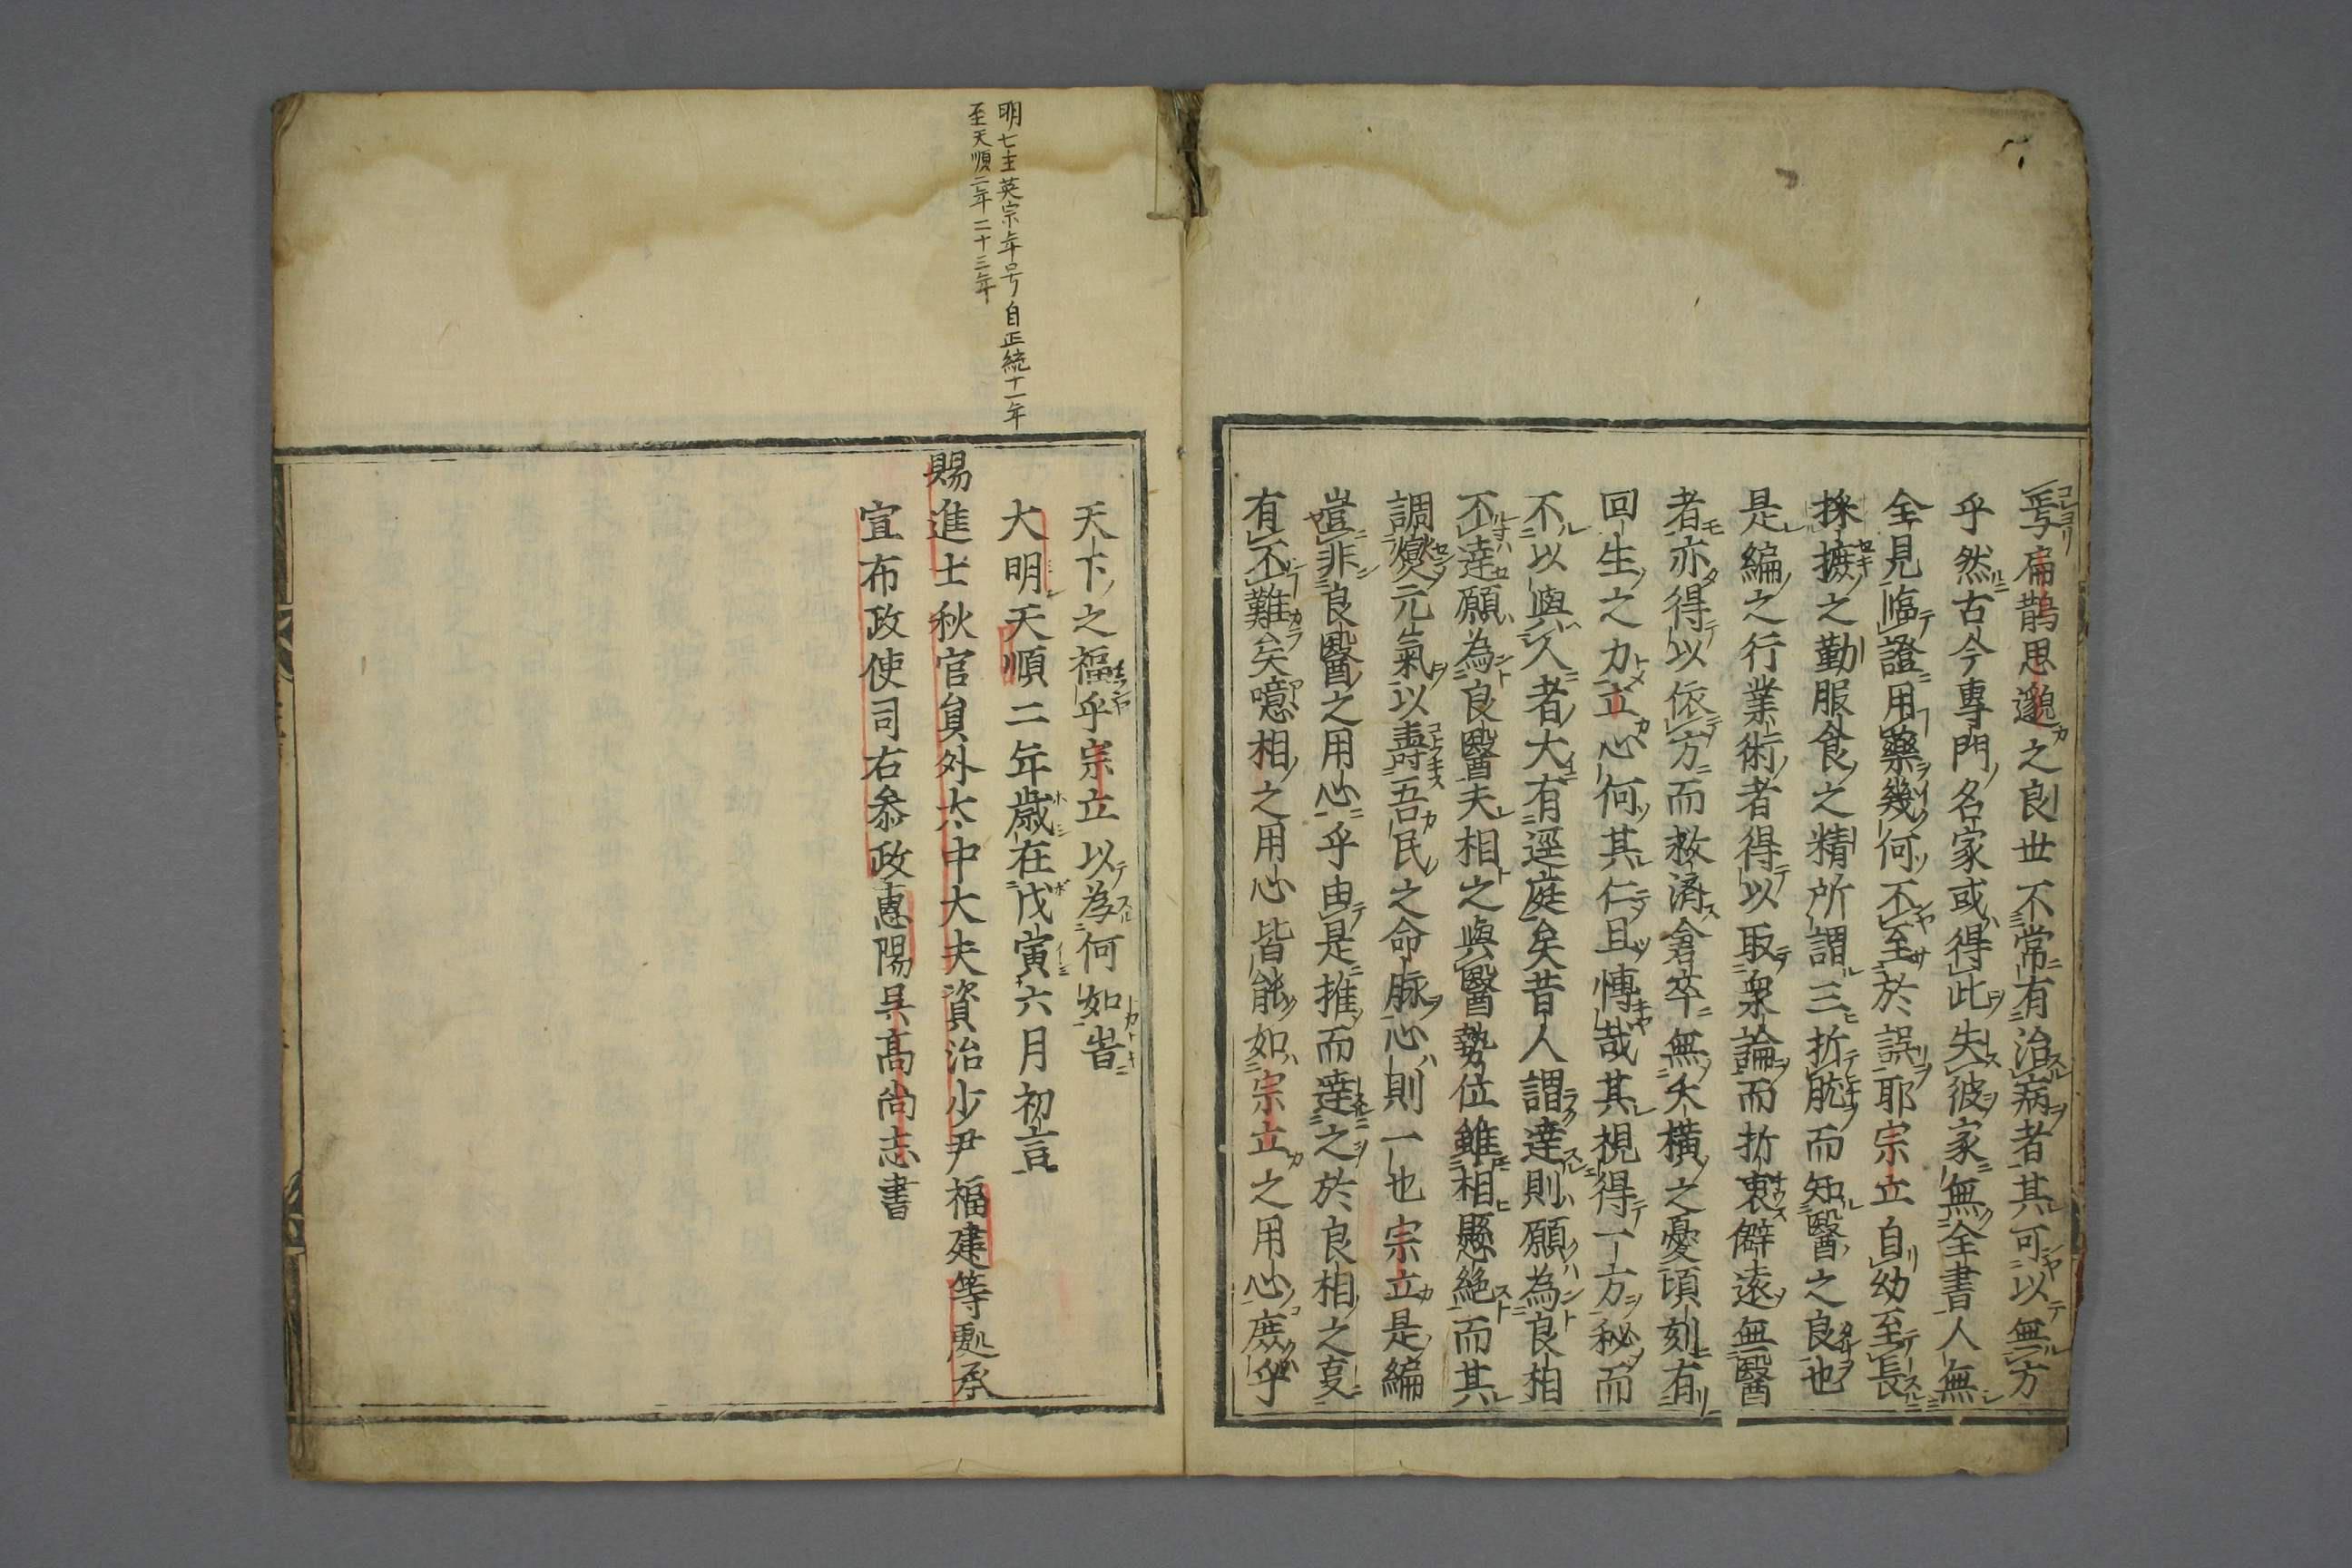 焉扁鵲思邈之良世不常有治病者其可以無方
乎然古今專門名家或得此失彼家無全書人無
全見臨證用藥幾何不至於誤耶宗立自幼至長
採摭之勤服食之精所謂三折肱而知醫之良也
是編之行業術者得以取衆論而折衷僻遠無醫
者亦得以依方而救濟倉卒無夭橫之憂頃刻有
回生之力立心何其仁且慱哉其視得一方秘而
不以與人者大有逕庭矣昔人謂達則願為良相
不達願為良醫夫相之與醫勢位雖相懸絶而其
調爕元氣以壽吾民之命脉心則一也宗立是編
豈非良醫之用心乎由是推而達之於良相之亨
有不難矣噫相之用心皆能如宗立之用心庶乎
天下之福乎宗立以為何如旹
大明天順二年歲在戊寅六月初吉
賜進士秋官員外太中大夫資治少尹福建等處承
宣布政使司右叅政惠陽吳高尚志書
明七主英宗年号自正統十一年
至天順二年二十三年